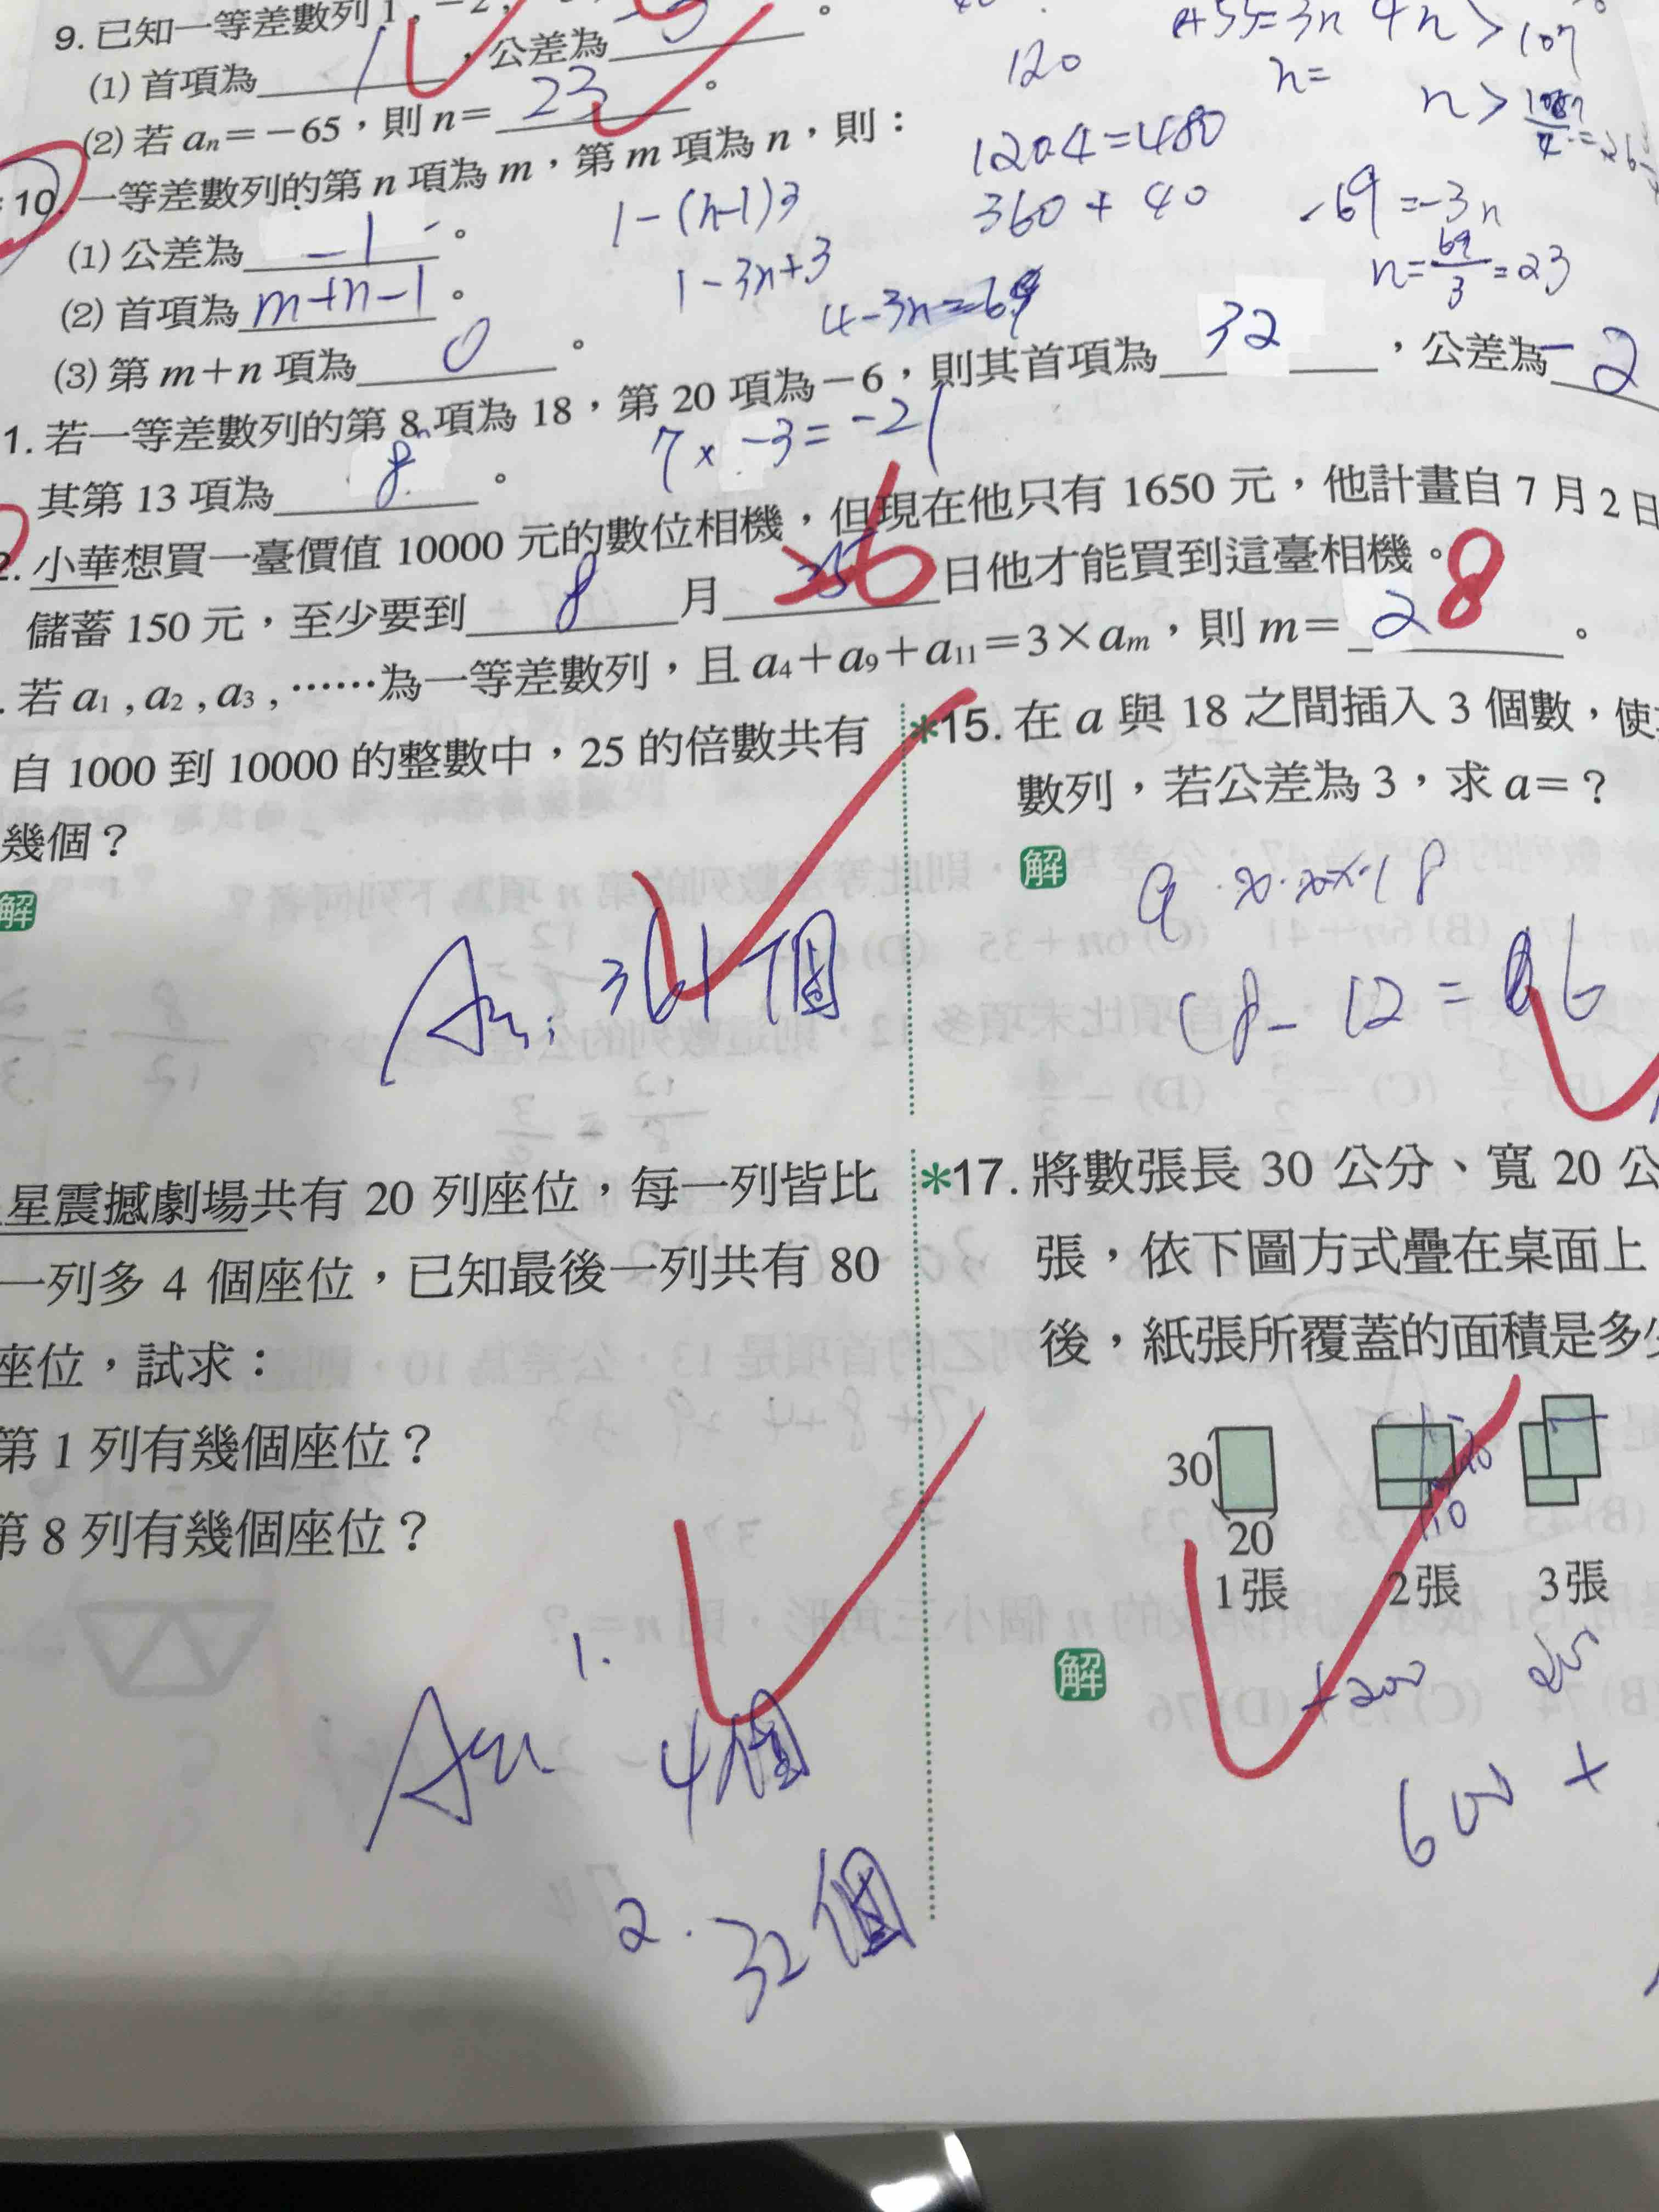 9. 已知一等差數列 1 , −2 ,
(1) 首項為 1 ，公差為 -3 。
(2) 若 an＝−65，則 n＝ 23 。
10. 一等差數列的第 n 項為 m，第 m 項為 n，則：
(1) 公差為 -1 。
(2) 首項為 m+n-1 。
(3) 第 m＋n 項為 0 。
120
120×4=480
360 + 40
n=
4n > 107
-69 =-3n
n= 69/3 =23
1-(n-1)3
1-3n+3
1. 若一等差數列的第 8 項為 18，第 20 項為−6，則其首項為 32 ，公差為 -2
其第 13 項為 8 。
7 × -3 = -21
2. 小華想買一臺價值 10000 元的數位相機，但現在他只有 1650 元，他計畫自 7 月 2 日
儲蓄 150 元，至少要到 8 月 26 日他才能買到這臺相機。
. 若 a1 , a2 , a3 , ……為一等差數列，且 a4＋a9＋a11＝3×am，則 m＝ 8 。
自 1000 到 10000 的整數中，25 的倍數共有
幾個？
解
An: 361 個
*15. 在 a 與 18 之間插入 3 個數，使
數列，若公差為 3，求 a＝？
解
18 - 12 = 6
星震撼劇場共有 20 列座位，每一列皆比
一列多 4 個座位，已知最後一列共有 80
座位，試求：
第 1 列有幾個座位？
第 8 列有幾個座位？
An
1.
4個
2. 32個
*17. 將數張長 30 公分、寬 20 公
張，依下圖方式疊在桌面上
後，紙張所覆蓋的面積是多少
30
20
1張
2張
3張
20
10
解
+200
600 +